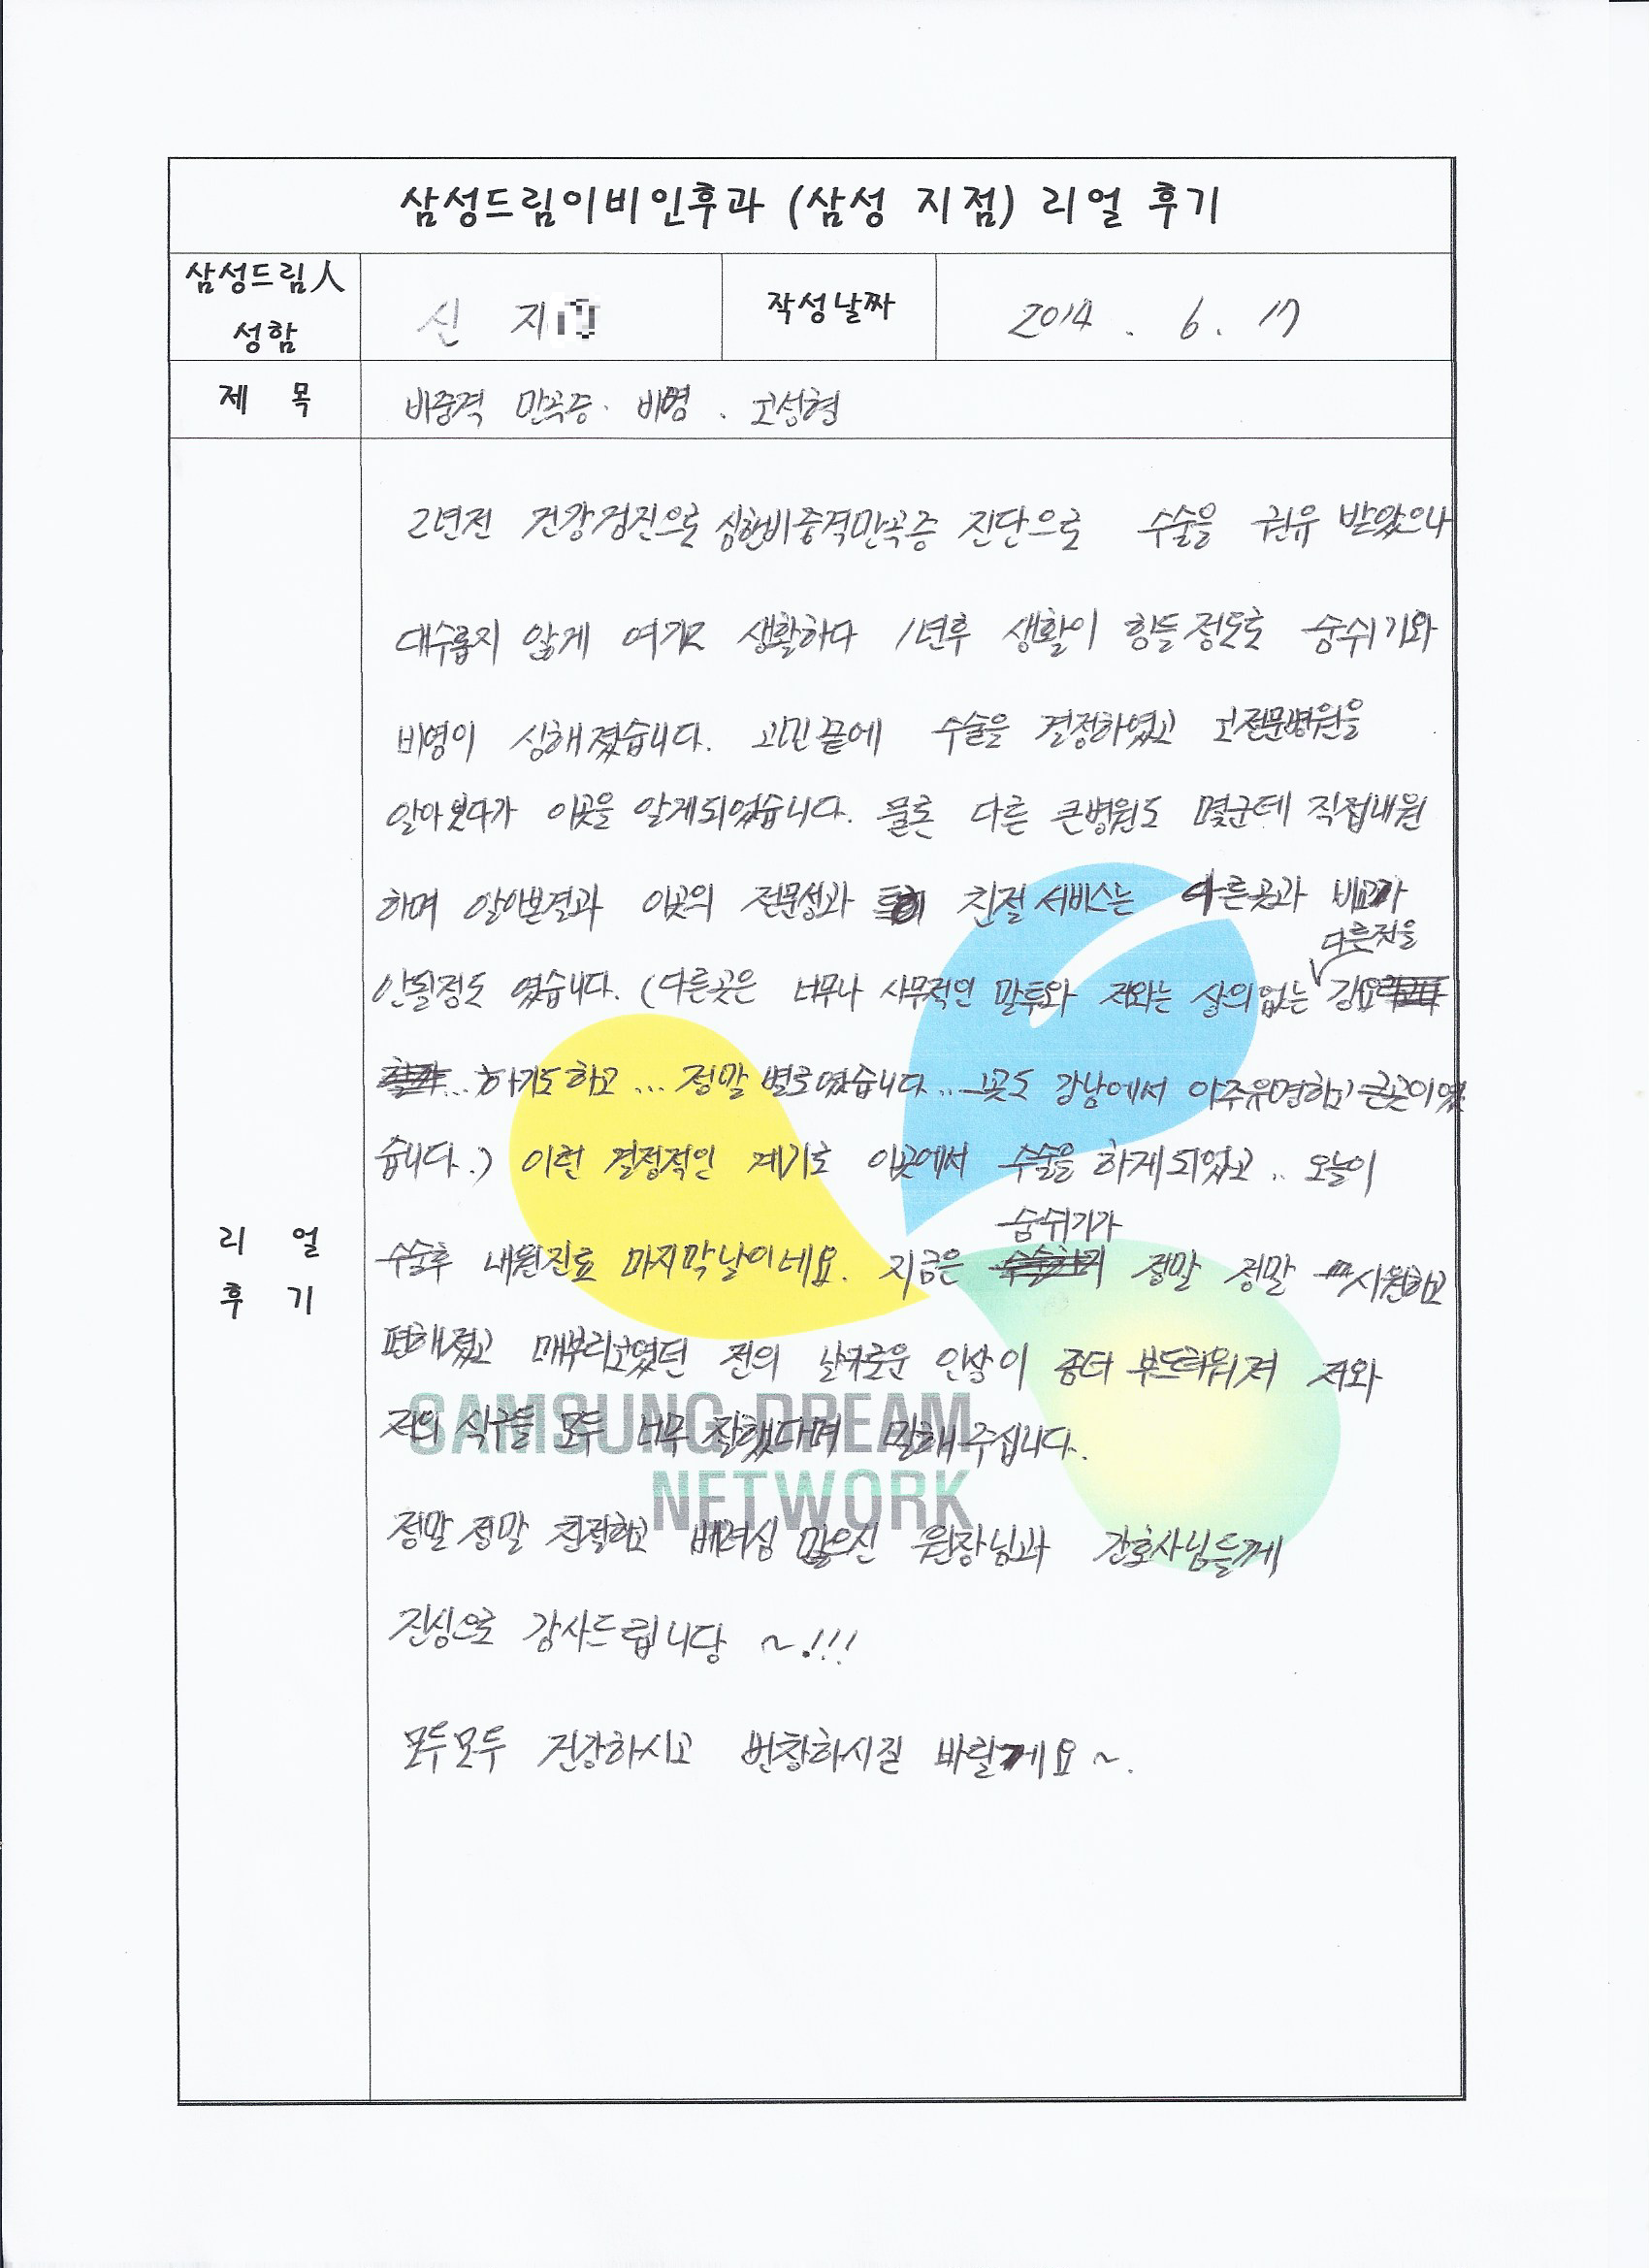 삼성드림이비인후과 (삼성 지점) 리얼 후기
삼성드림人
성함
신 지
작성날짜
2014 . 6 . 17
제 목
비중격 만곡증 · 비염 . 코성형
2년전 건강검진으로 심한비중격만곡증 진단으로 수술을 권유 받았으나
대수롭지 않게 여기고 생활하다 1년후 생활이 힘들정도로 숨쉬기와
비염이 심해졌습니다. 고민끝에 수술을 결정하였고 코전문병원을
알아보다가 이곳을 알게되었습니다. 물론 다른 큰병원도 몇군데 직접내원
하며 알아본결과 이곳의 전문성과 친절 서비스는 다른곳과 비교가
다른것을
안될정도 였습니다. (다른곳은 너무나 사무적인 말투와 저와는 상의없는 강요
... 하기도하고 ... 정말 별로였습니다... 그곳도 강남에서 아주유명하고 큰곳이였
습니다.) 이런 결정적인 계기로 이곳에서 수술을 하게되었고.. 오늘이
숨쉬기가
수술후 내원진료 마지막날이네요. 지금은 정말 정말 시원하고
리 얼
후 기
편해졌고 매부리코였던 전의 날카로운 인상이 좀더 부드러워져 저와
저의 식구들 모두 너무 잘했다며 말해주십니다.
SAMSUNG DREAM
NETWORK
정말 정말 친절하고 배려심 많으신 원장님과 간호사님들께
진심으로 감사드립니당 ~!!!
모두모두 건강하시고 번창하시길 바랄게요~.